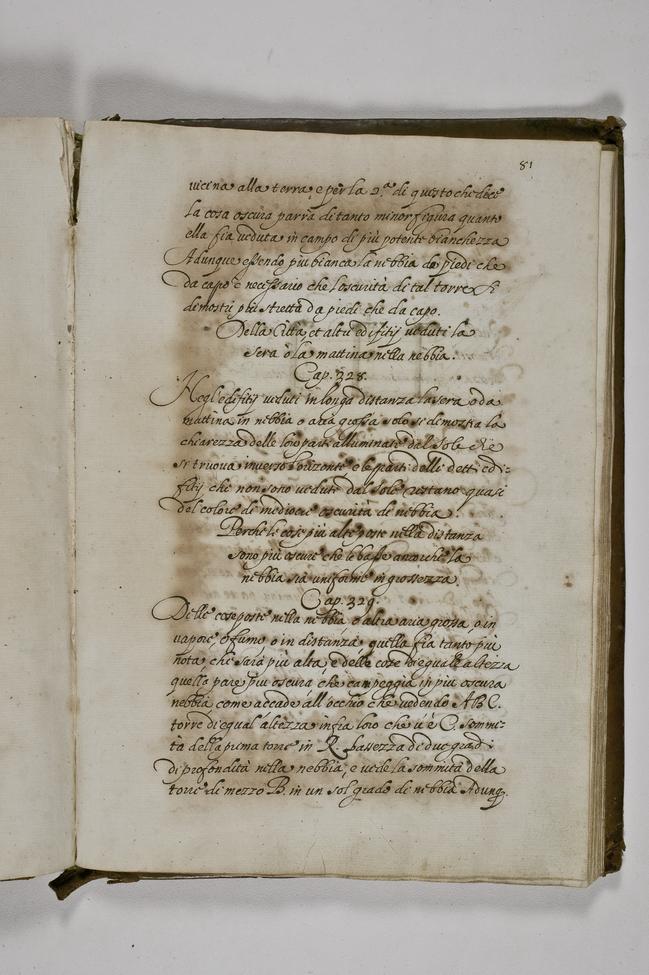 81
vicina alla terra, e per la 2.ª di questo che dice
la cosa oscura parrà di tanto minor figura quanto
ella fia veduta in campo di più potente bianchezza
Adunque essendo più bianca la nebbia da piedi che
da capo è necessario che l'oscurità di tal torre si
dimostri più stretta da piedi che da capo.
Della Città, et altri edifitij veduti la
sera ò la mattina nella nebbia.
Cap. 328.
Negl'edifitij veduti in longa distanza la sera o da
mattina in nebbia o aria grossa solo si dimostra la
chiarezza delle loro parti alluminate dal sole che
si truova inverso l'orizonte e le parti delli detti edi-
fitij che non sono vedute dal sole restano quasi
del colore di mediocre oscurità di nebbia.
Perche le cose più alte poste nella distanza
sono più oscure che le basse ancorche la
nebbia sia uniforme in grossezza.
Cap. 329.
Delle cose poste nella nebbia o altra aria grossa, o in
vapore, o fumo o in distanza quella fia tanto più
nota, che sarà più alta, e delle cose di equale altezza
quella pare più oscura che campeggia in più oscura
nebbia come accade all'occhio che vedendo A B C.
torre di equal altezza infra loro che vè C. sommi-
tà della prima torre in R. bassezza di due gradi
di profondità nella nebbia, e vede la sommità della
torre di mezzo B. in un sol grado di nebbia Adunq.